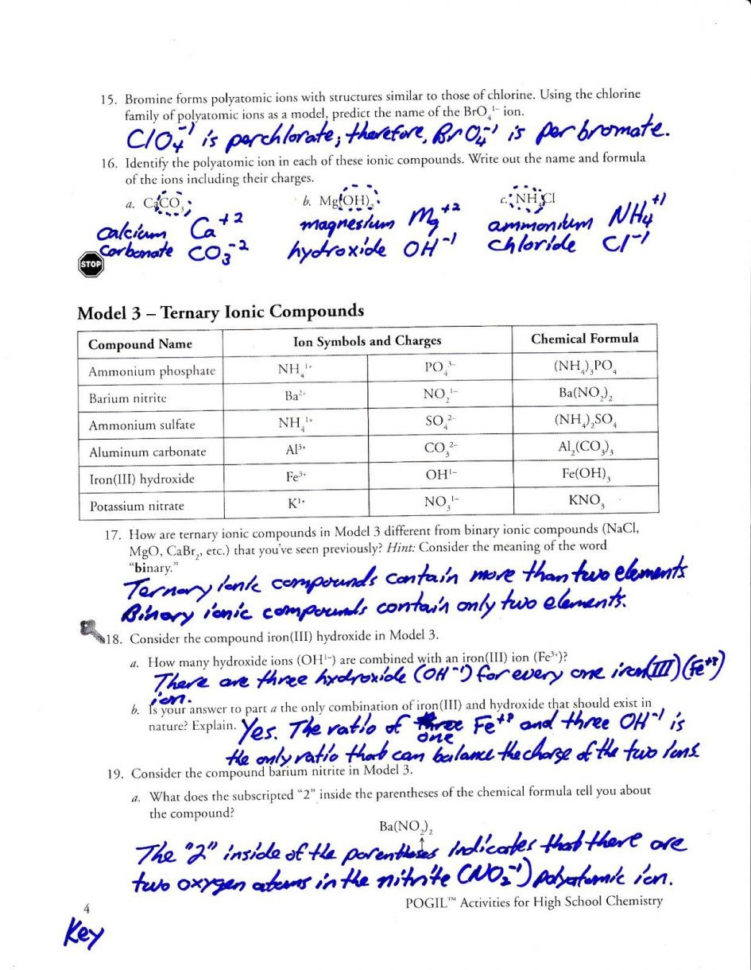 15. Bromine forms polyatomic ions with structures similar to those of chlorine. Using the chlorine
family of polyatomic ions as a model, predict the name of the BrO₄¹⁻ ion.
ClO₄⁻¹ is perchlorate; therefore, BrO₄⁻¹ is perbromate.
16. Identify the polyatomic ion in each of these ionic compounds. Write out the name and formula
of the ions including their charges.
a. CaCO₃ b. Mg(OH)₂ c. NH₄Cl
calcium Ca⁺² magnesium Mg⁺² ammonium NH₄⁺¹
Carbonate CO₃⁻² hydroxide OH⁻¹ chloride Cl⁻¹
STOP
Model 3 – Ternary Ionic Compounds
Compound Name Ion Symbols and Charges Chemical Formula
Ammonium phosphate NH₄¹⁺ PO₄³⁻ (NH₄)₃PO₄
Barium nitrite Ba²⁺ NO₂¹⁻ Ba(NO₂)₂
Ammonium sulfate NH₄¹⁺ SO₄²⁻ (NH₄)₂SO₄
Aluminum carbonate Al³⁺ CO₃²⁻ Al₂(CO₃)₃
Iron(III) hydroxide Fe³⁺ OH¹⁻ Fe(OH)₃
Potassium nitrate K¹⁺ NO₃¹⁻ KNO₃
17. How are ternary ionic compounds in Model 3 different from binary ionic compounds (NaCl,
MgO, CaBr₂, etc.) that you've seen previously? Hint: Consider the meaning of the word
"binary."
Ternary ionic compounds contain more than two elements
Binary ionic compounds contain only two elements.
18. Consider the compound iron(III) hydroxide in Model 3.
a. How many hydroxide ions (OH¹⁻) are combined with an iron(III) ion (Fe³⁺)?
There are three hydroxide (OH⁻¹) for every one iron(III) (Fe⁺³)
ion.
b. Is your answer to part a the only combination of iron(III) and hydroxide that should exist in
nature? Explain. Yes. The ratio of three Fe⁺³ and three OH⁻¹ is
one
the only ratio that can balance the charge of the two ions
19. Consider the compound barium nitrite in Model 3.
a. What does the subscripted "2" inside the parentheses of the chemical formula tell you about
the compound?
Ba(NO₂)₂
↑
The "2" inside of the parentheses indicates that there are
two oxygen atoms in the nitrite (NO₂⁻¹) polyatomic ion.
4 POGIL™ Activities for High School Chemistry
Key